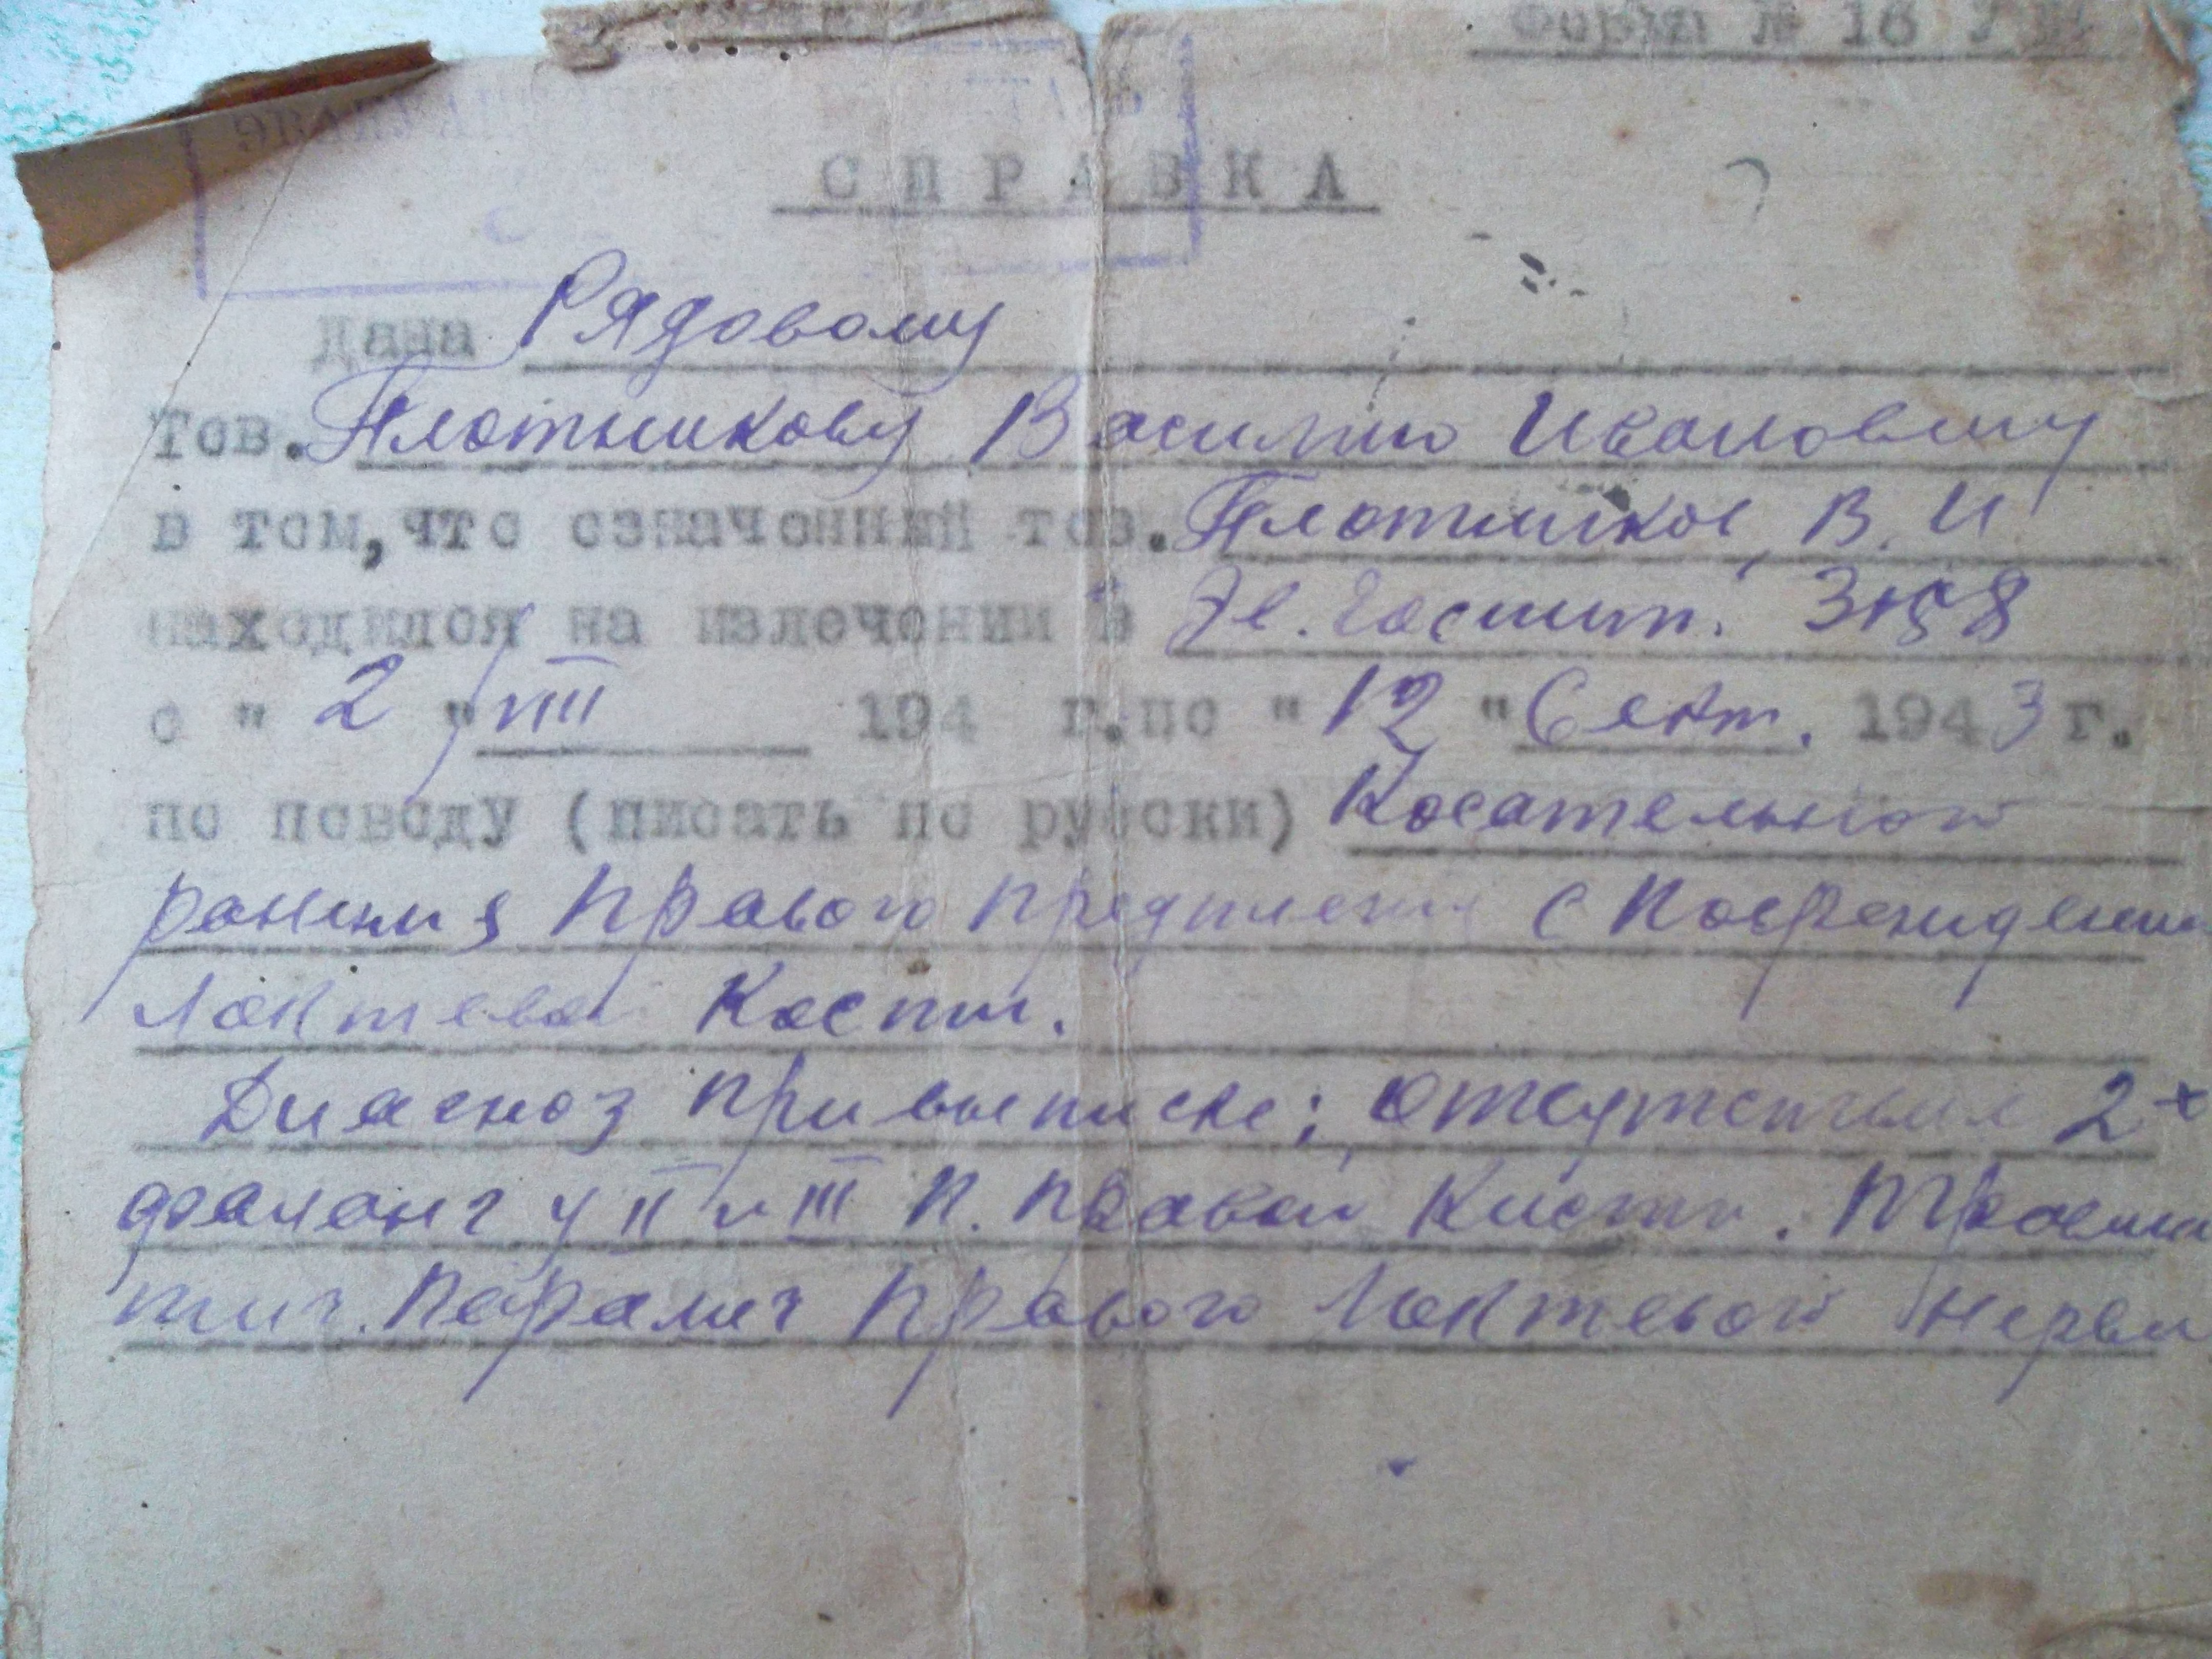 Форма № 16
СПРАВКА
Дана Рядовому
Тов. Плотникову Василию Ивановичу
в том, что означенный тов. Плотников В. И.
находился на излечении в Эв. Госпит.
с " 2 " VIII 194 г. по " 12 " Сент. 1943 г.
по поводу (писать по русски) Косательной
ранения правого предплечия с Повреждением
Локтевой Кости.
Диагноз при выписке; отсутствие 2х
фаланг у II и III п. правой Кисти. Травма
тич. Паралич правого Локтевой Нерва